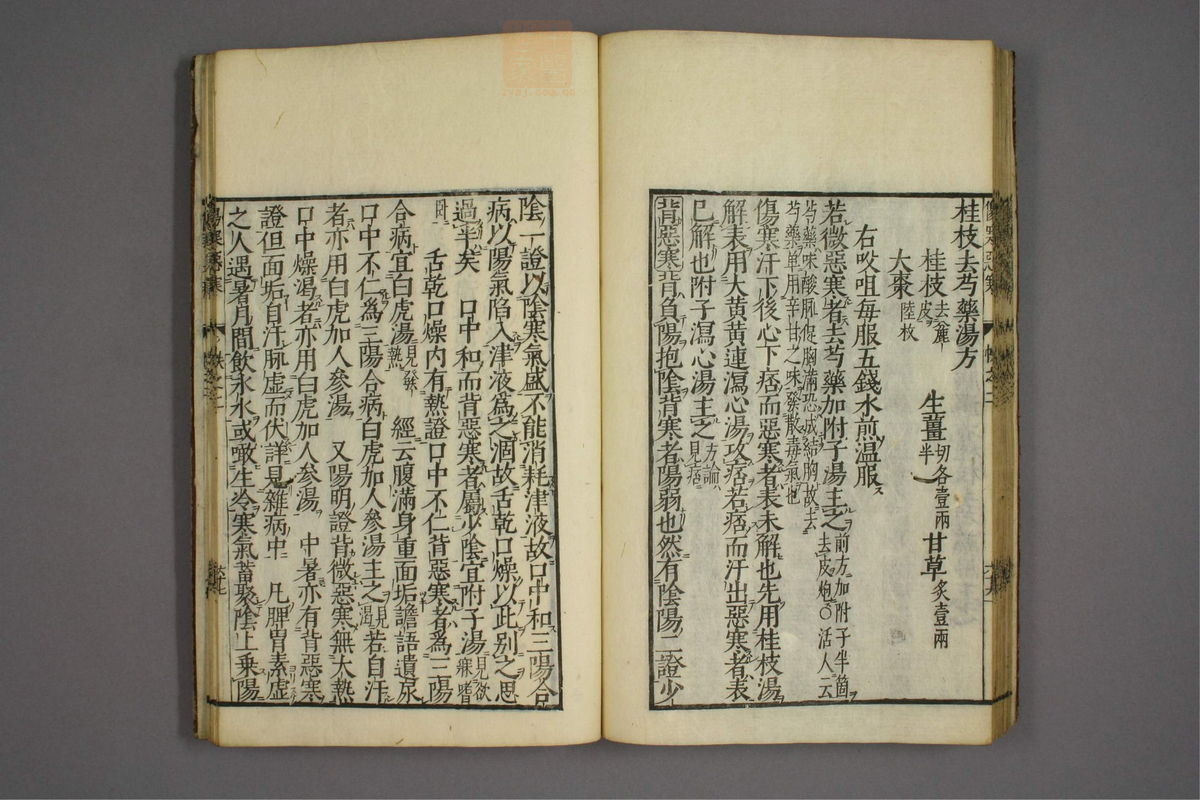 桂枝去芍藥湯方
桂枝去麄皮 生薑切各壹兩半 甘草炙壹兩
大棗陸枚
右㕮咀每服五錢水煎温服
若微惡寒者去芍藥加附子湯主之前方加附子半箇去皮炮○活人云
芍藥味酸脉促胸滿恐成結胸故去芍藥單用辛甘之味發散毒氣也
傷寒汗下後心下痞而惡寒者表未解也先用桂枝湯
解表用大黄黄連瀉心湯攻痞若痞而汗出惡寒者表
已解也附子瀉心湯主之方論見痞
背惡寒背負陽抱陰背寒者陽弱也然有陰陽二證少
陰一證以陰寒氣盛不能消耗津液故口中和三陽合
病以陽氣陷入津液爲之涸故舌乾口燥以此別之思
過半矣 口中和而背惡寒者屬少陰宜附子湯見欲寐嗜
卧 舌乾口燥内有熱證口中不仁背惡寒者為三陽
合病宜白虎湯見發熱 經云腹滿身重面垢譫語遺尿
口中不仁爲三陽合病白虎加人參湯主之見渴若自汗
者亦用白虎加人參湯 又陽明證背微惡寒無大熱
口中燥渴者亦用白虎加人參湯 中暑亦有背惡寒
證但面垢自汗脉虚而伏詳見雜病中 凡脾胃素虚
之人遇暑月間飲氷水或噉生冷寒氣蓄聚陰上乗陽